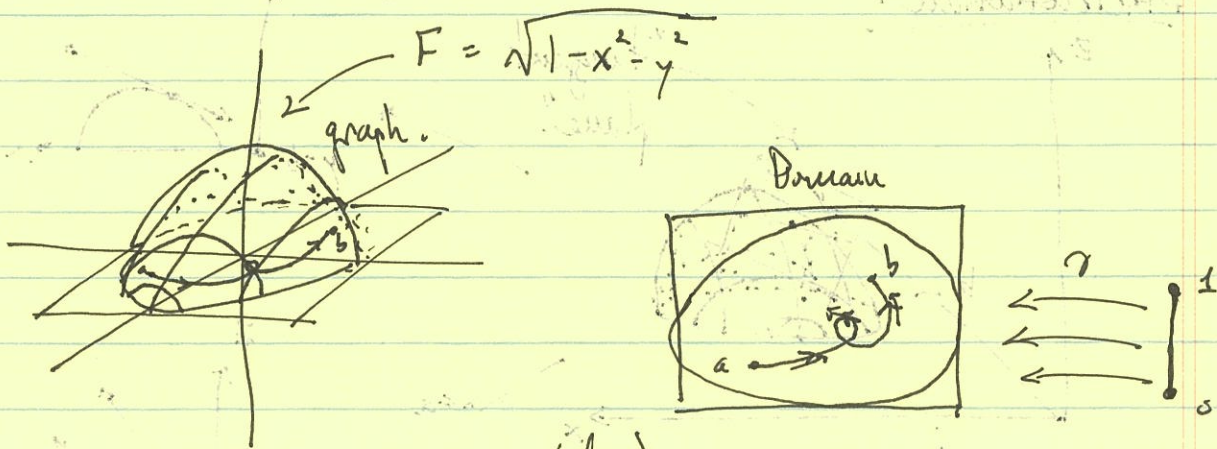 F = √(1-x²-y²)
graph.
b
Domain
b
a
γ
1
0